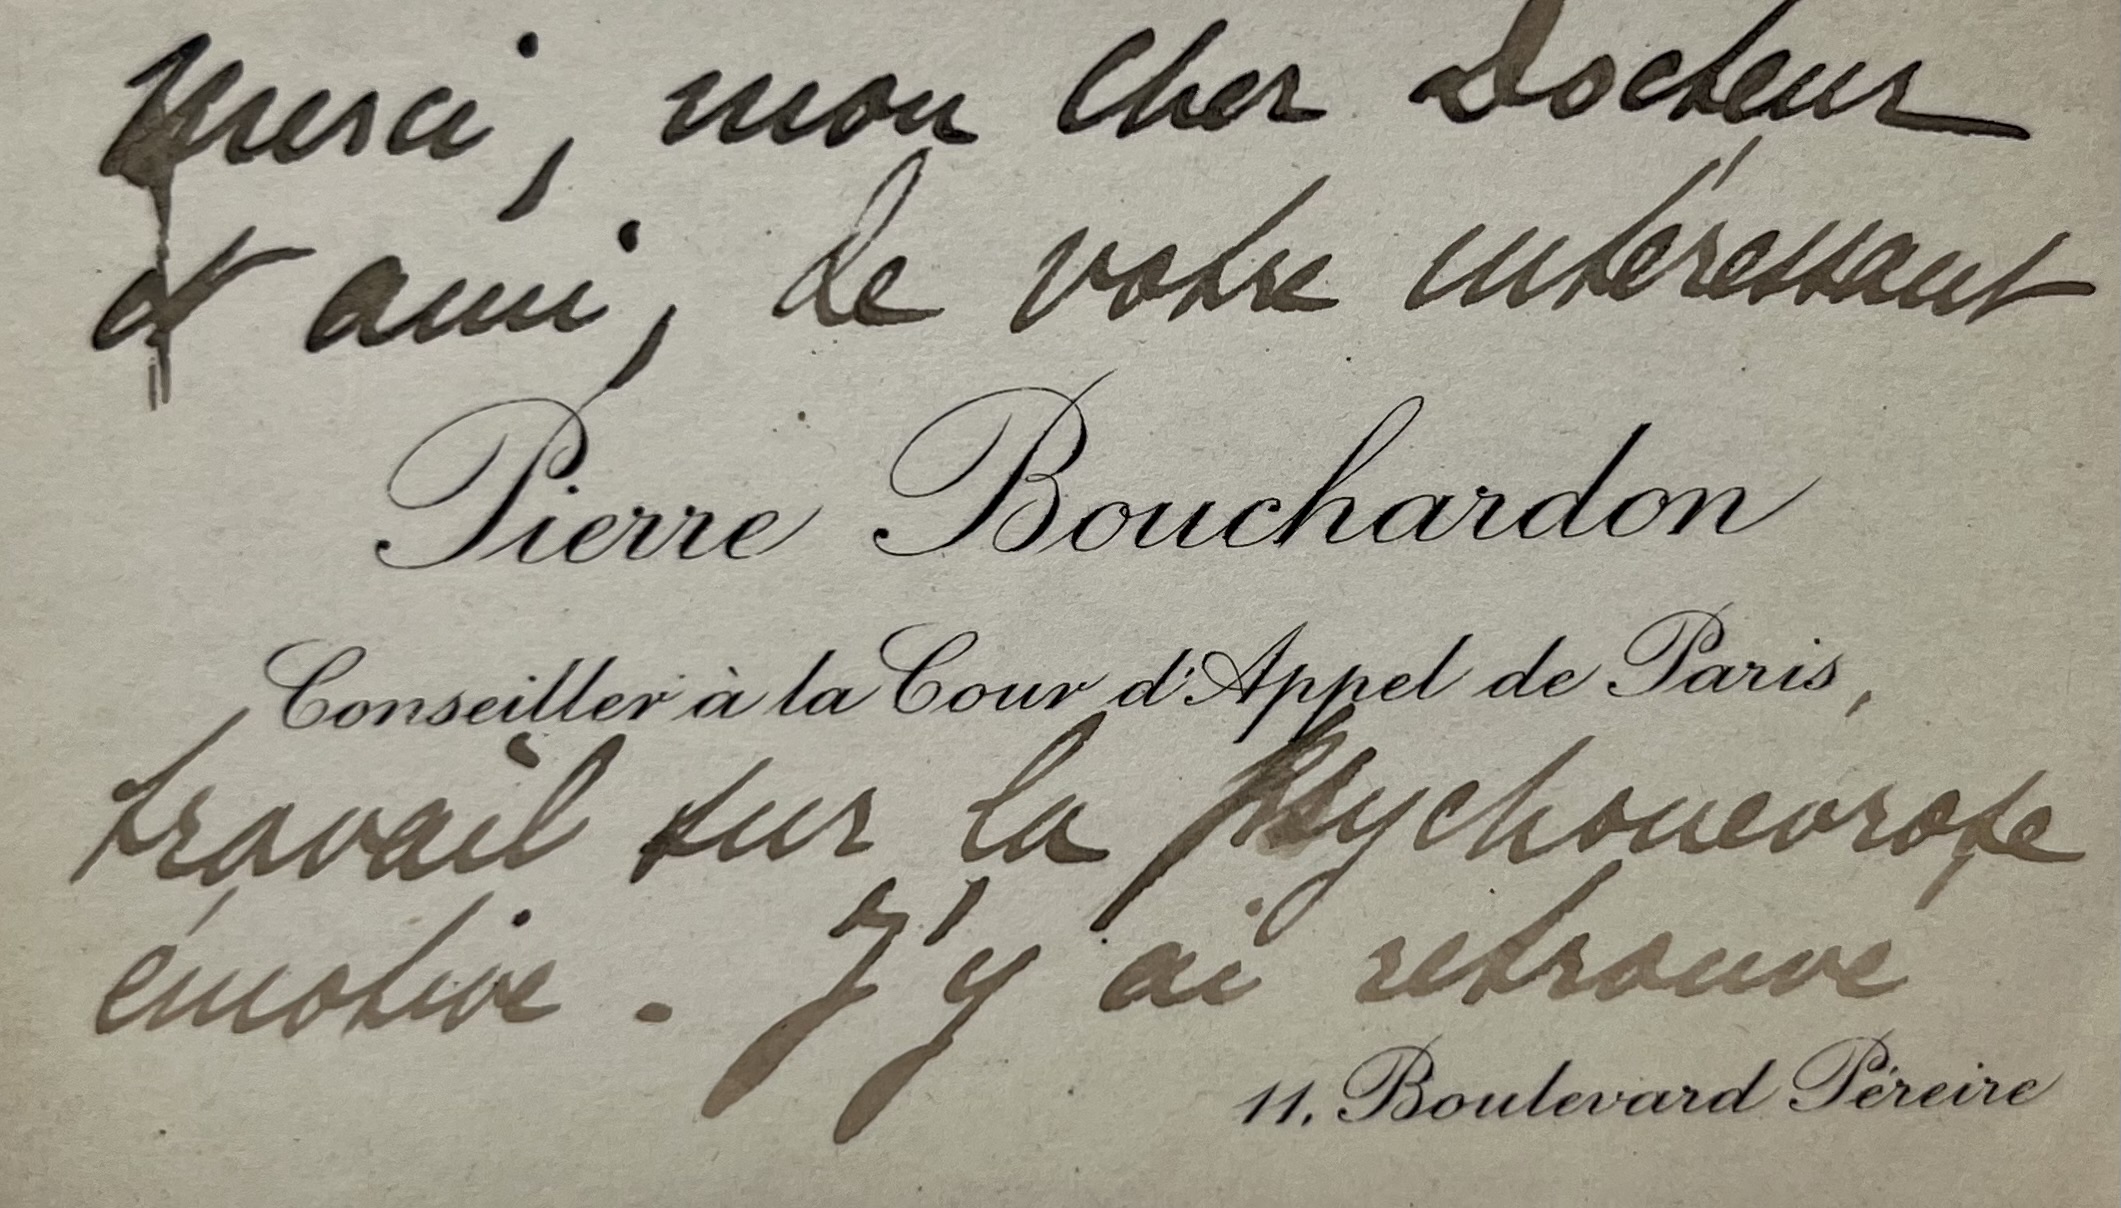 Merci, mon cher Docteur
et ami, de votre intéressant
Pierre Bouchardon
Conseiller à la Cour d'Appel de Paris,
travail sur la Psychonevrose
émotive. J'y ai retrouvé
11, Boulevard Péreire